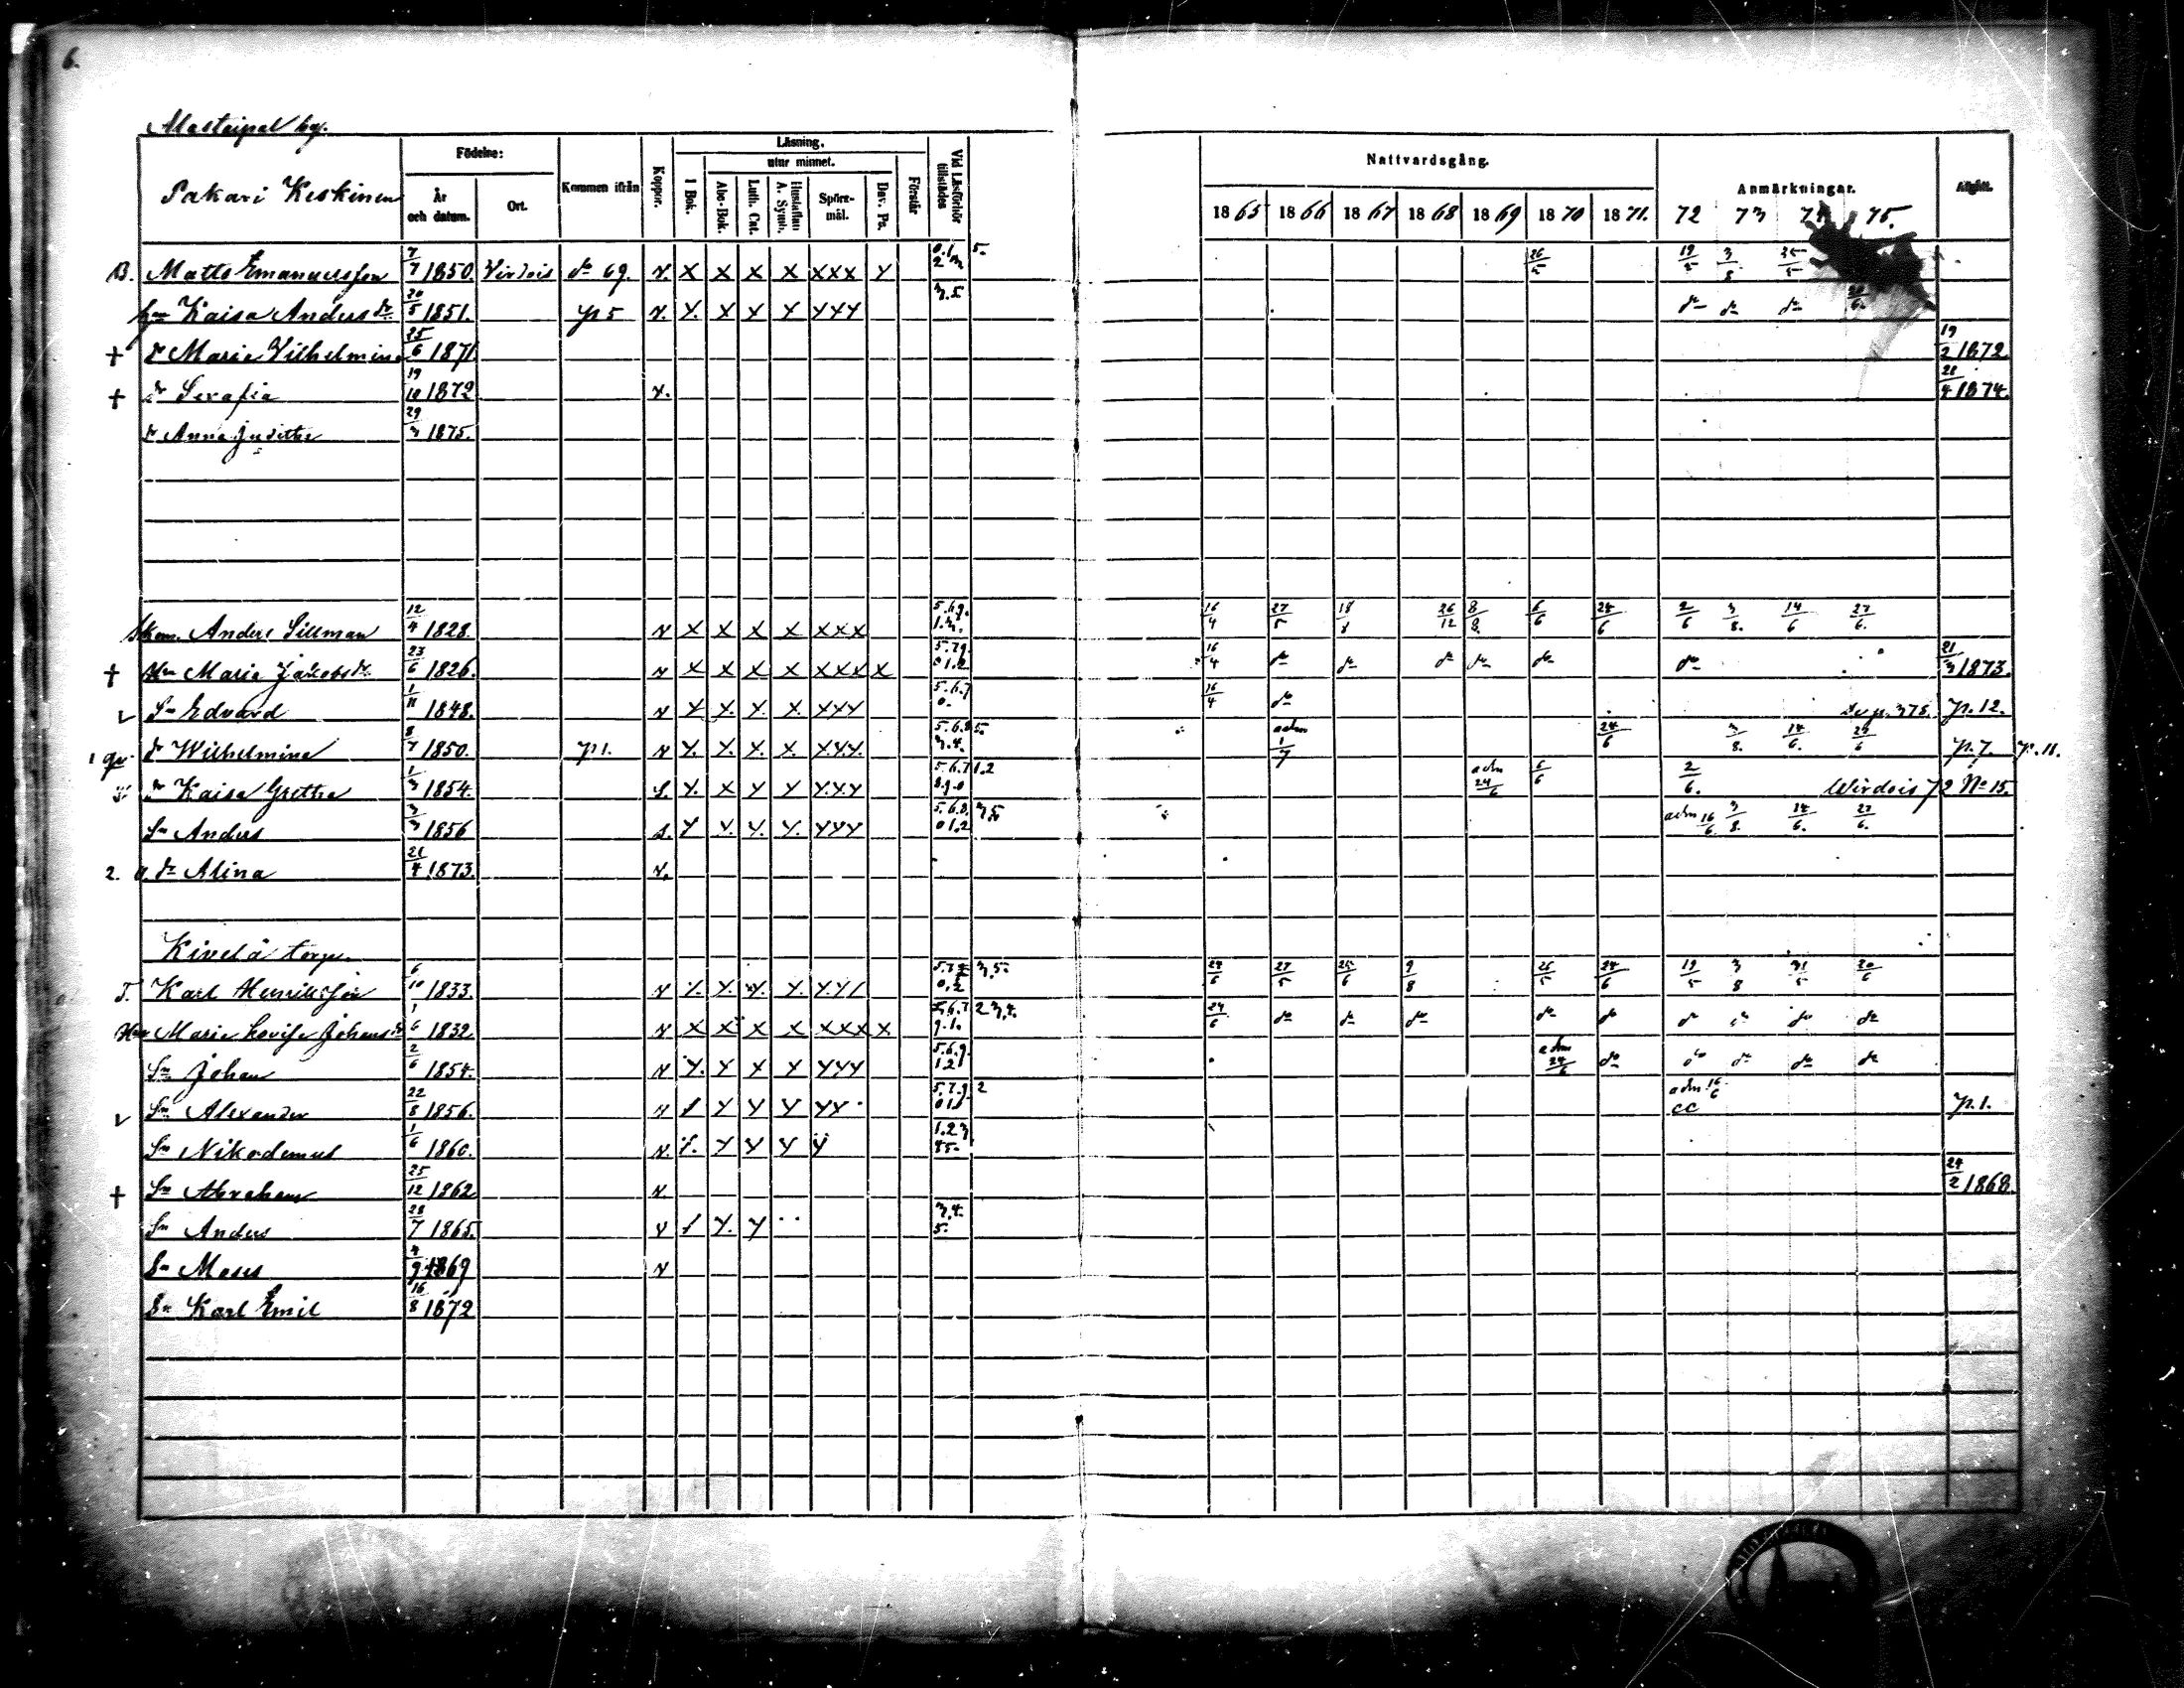 6.
by.
Pakari Keskinen
Födelse:
År och datum.
Ort.
Kommen ifrån
Koppor.
Läsning,
I Bok.
utur minnet.
Abc-Bok.
Luth. Cat.
Hustaflan A. Symb.
Spörs-mål.
Dav. Ps.
Förstår
Vid Läsförhör tillstädes
Nattvardsgång.
1865 1866 1867 1868 1869 1870 1871.
Anmärkningar.
72 73 74 75.
Afgått.
B. Matts Emanuelsson 7/7 1850. Virdois do 69. X X X X XXX 0.1. 2 5. 26/5 19/5 3/8
Kaisa Anders dr 20/5 1851. p 5 X X X X XXX 3.5 do do do 20/6.
† dr Maria Vilhelmina 25/6 1871 19/2 1872.
† dr Serafia 19/10 1872 21/4 1874.
dr Anna Juditha 29/3 1875.
Anders Sillman 12/4 1828. X X X X XXX 16/4 27/5 26/12 8/8. 6/6 24/6 2/6 3/8. 14/6 27/6.
† Hu Maria Jakobs dr 23/6 1826. X X X X XXX X 16/4 do do do do do do 21/3 1873.
v Sn Edvard 1/11 1848. X X. X. X. XXX 5.6.7 0. 16/4 do p. 12.
dr Wilhelmina 8/7 1850. p 1. X. X. X. X. XXX. adm 1/7 24/6 3/8. 14/6. p. 7. p. 11.
dr Kaisa Gretha 1/3 1854. X. X X X XXX 5.6.7 1.2 adm 24/6 6/6 2/6. Wirdois 72 No 15.
Sn Anders 3/3 1856 X X. X. X. XXX 5.6.8. 0 1.2 3.5. adm 16/6. 3/8. 14/6. 27/6.
2. dr Alina 21/4 1873.
Kivelä torp.
T. Karl Henriksson 6/10 1833. X. X. X. X. 3,5. 24/6 27/5 25/6 9/8 26/5 24/6 19/5 3/8 31/5 20/6
Maria Lovisa Johans dr 1/6 1832. X X X X XXX X 5.6.7 9.1. 24/6 do do do do do do do do do
Sn Johan 2/6 1854. X. X X X XXX 5.6.9. 1 2 adm 24/6 do do do do do
v Sn Alexander 22/8 1856. X X X XX 5.7.9. 2 adm 16/6 cc p. 1.
Sn Nikodemus 1/6 1860. X. X X X X 1.2.3
† Sn Abraham 25/12 1862 24/2 1868.
Sn Anders 28/7 1865. X. X 3.4. 5.
Sn Moses 4/9 1869
Sn Karl Emil 16/8 1872